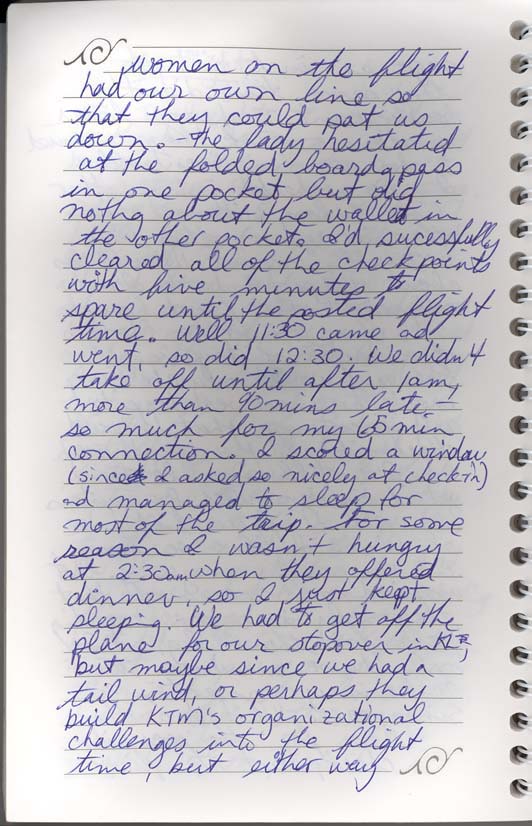 women on the flight
had our own line so
that they could pat us
down. - the lady hesitated
at the folded boardg pass
in one pocket, but did
nothg about the wallet in
the other pocket. I'd sucessfully
cleared all of the checkpoints
with five minutes to
spare until the posted flight
time. Well 11:30 came ad
went, so did 12:30. We didn't
take off until after 1am,
more than 90 mins late -
so much for my 65 min
connection. I scored a window
(since I asked so nicely at checkin)
ad managed to sleep for
most of the trip. For some
reason I wasn't hungry
at 2:30am when they offered
dinner, so I just kept
sleeping. We had to get off the
plane for our stopover in
but maybe since we had a
tail wind, or perhaps they
build KTM's organizational
challenges into the flight
time, but either way